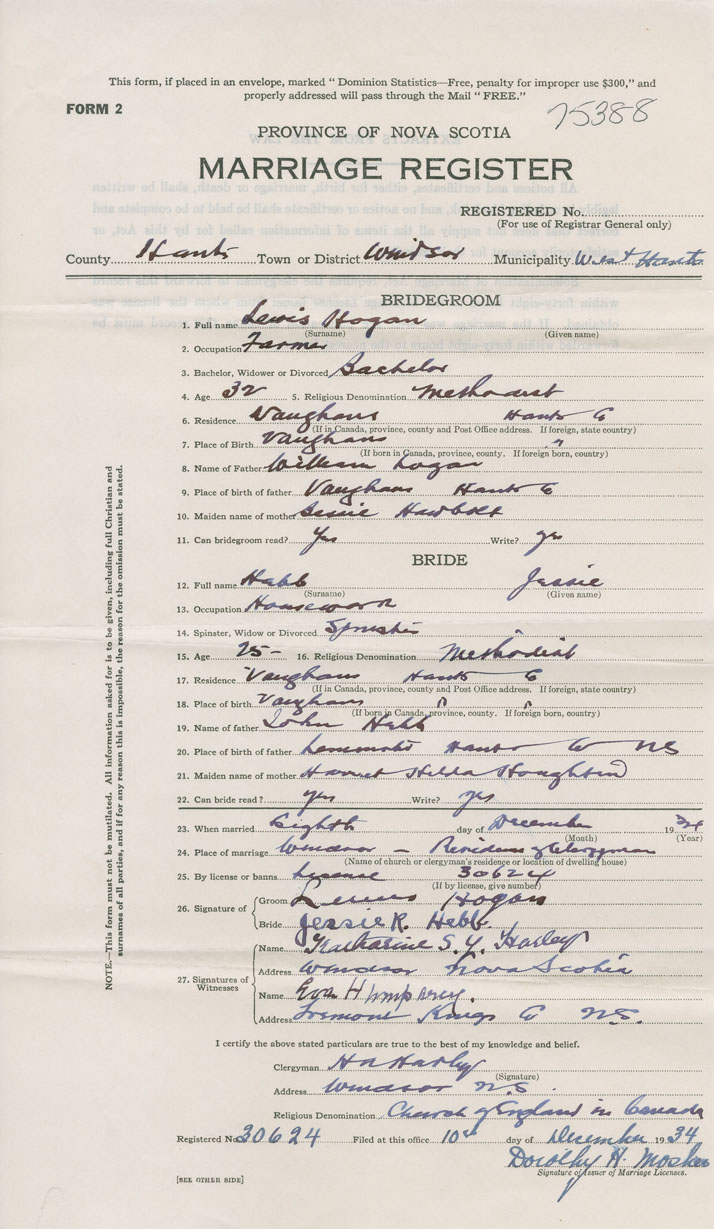 This form, if placed in an envelope, marked " Dominion Statistics—Free, penalty for improper use $300," and
properly addressed will pass through the Mail " FREE."
FORM 2
75388
PROVINCE OF NOVA SCOTIA
MARRIAGE REGISTER
REGISTERED No.
(For use of Registrar General only)
County Hants Town or District Windsor Municipality West Hants
BRIDEGROOM
1. Full name Lewis Hogan
(Surname) (Given name)
2. Occupation Farmer
3. Bachelor, Widower or Divorced Bachelor
4. Age 32 5. Religious Denomination Methodist
6. Residence Vaughans Hants Co
(If in Canada, province, county and Post Office address. If foreign, state country)
7. Place of Birth Vaughans "
(If born in Canada, province, county. If foreign born, country)
8. Name of Father William Hogan
9. Place of birth of father Vaughans Hants Co
10. Maiden name of mother Hawbolt
11. Can bridegroom read? Yes Write? yes
BRIDE
12. Full name Hebb Jessie
(Surname) (Given name)
13. Occupation Housework
14. Spinster, Widow or Divorced Spinster
15. Age 25- 16. Religious Denomination Methodist
17. Residence Vaughans Hants Co
(If in Canada, province, county and Post Office address. If foreign, state country)
18. Place of birth Vaughans " "
(If born in Canada, province, county. If foreign born, country)
19. Name of father John Hebb
20. Place of birth of father Hants Co NS
21. Maiden name of mother Harriet Hilda Houghton
22. Can bride read? yes Write? yes
23. When married Eighth day of December 1934
(Month) (Year)
24. Place of marriage Windsor — Residence of Clergyman
(Name of church or clergyman's residence or location of dwelling house)
25. By license or banns License 30624
(If by license, give number)
26. Signature of
Groom Lewis Hogan
Bride Jessie R. Hebb
27. Signatures of Witnesses
Name Katharine S. Y. Harley
Address Windsor Nova Scotia
Name Eva Humphrey.
Address Tremont Kings Co N.S.
I certify the above stated particulars are true to the best of my knowledge and belief.
Clergyman Harley
(Signature)
Address Windsor N.S.
Religious Denomination Church of England in Canada
Registered No. 30624 Filed at this office 10th day of December 1934
Dorothy H. Mosher
Signature of Issuer of Marriage Licenses.
[SEE OTHER SIDE]
NOTE.—This form must not be mutilated. All information asked for is to be given, including full Christian and
surnames of all parties, and if for any reason this is impossible, the reason for the omission must be stated.